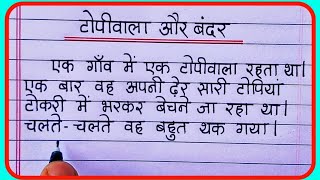 टोपीवाला और बंदर
एक गाँव में एक टोपीवाला रहता था।
एक बार वह अपनी ढ़ेर सारी टोपियां
टोकरी में भरकर बेचने जा रहा था।
चलते-चलते वह बहुत थक गया।